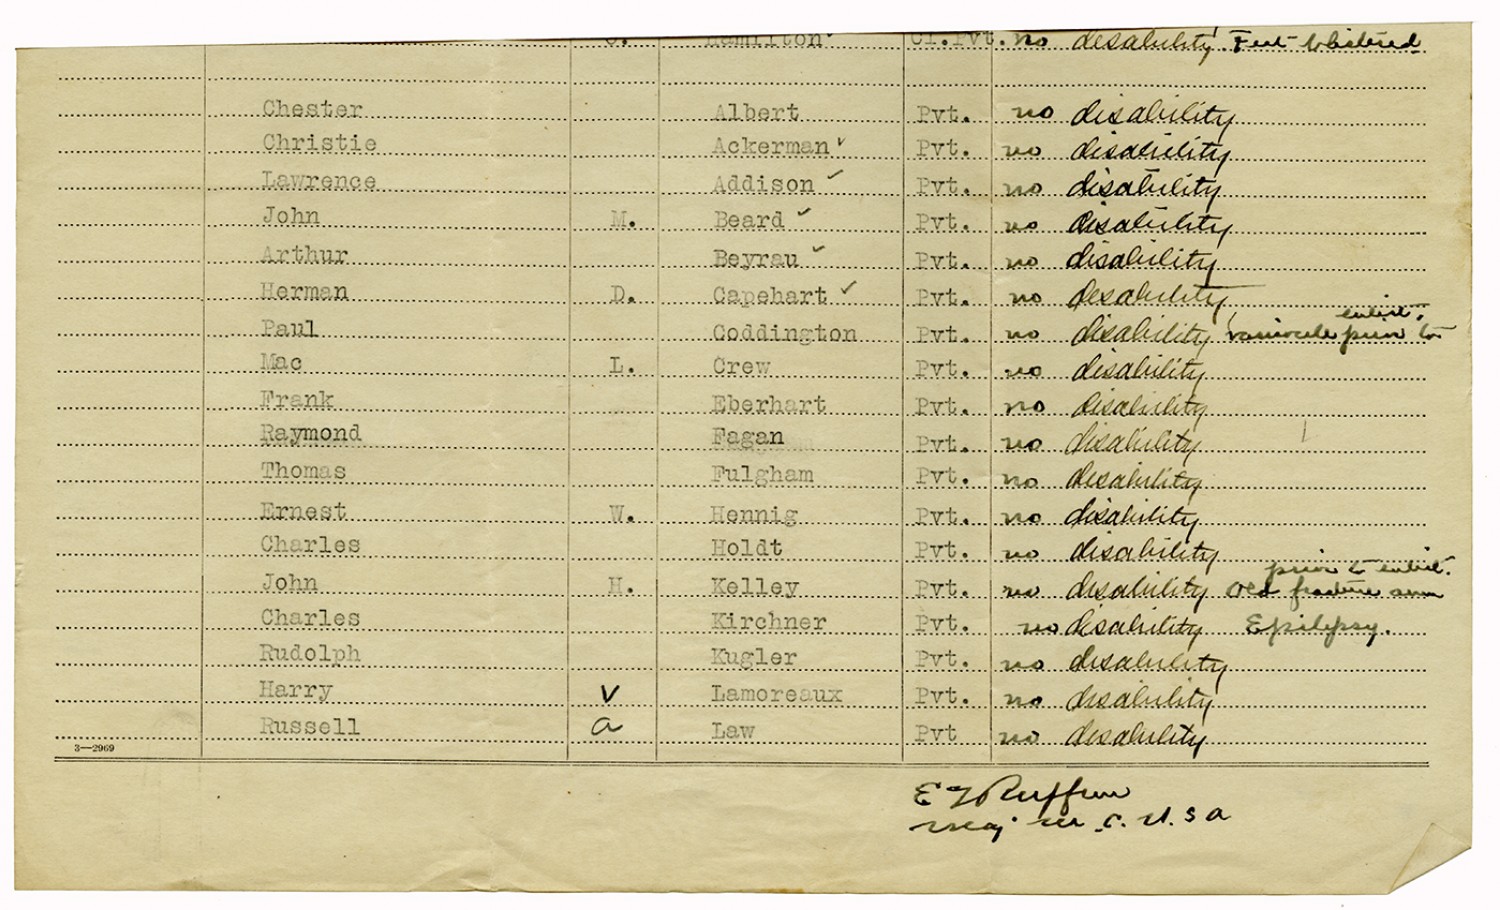 C. Hamilton Cf.Pvt. no disability. Feet blistered
Chester Albert Pvt. no disability
Christie Ackerman ✓ Pvt. no disability
Lawrence Addison ✓ Pvt. no disability
John M. Beard ✓ Pvt. no disability
Arthur Beyrau ✓ Pvt. no disability
Herman D. Capehart ✓ Pvt. no disability
enlist.
Paul Coddington Pvt. no disability varicocele prior to
Mac L. Crew Pvt. no disability
Frank Eberhart Pvt. no disability
Raymond Fagan Pvt. no disability
Thomas Fulgham Pvt. no disability
Ernest W. Hennig Pvt. no disability
Charles Holdt Pvt. no disability
prior to enlist.
John H. Kelley Pvt. no disability Old fracture arm
Charles Kirchner Pvt. no disability Epilepsy.
Rudolph Kugler Pvt. no disability
Harry V Lamoreaux Pvt. no disability
Russell a Law Pvt no disability
3—2969
E Ruffin
Maj M. C. U. S A